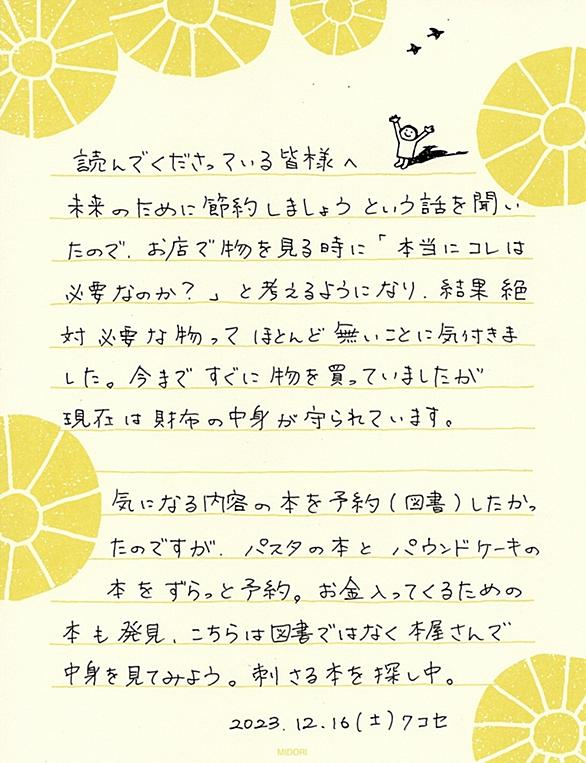 読んでくださっている皆様へ
未来のために節約しましょうという話を聞い
たので、お店で物を見る時に「本当にコレは
必要なのか?」と考えるようになり、結果 絶
対必要な物ってほとんど無いことに気付きま
した。今まですぐに物を買っていましたが
現在は財布の中身が守られています。
気になる内容の本を予約(図書)したかっ
たのですが、パスタの本とパウンドケーキの
本をずらっと予約。お金入ってくるための
本も発見、こちらは図書ではなく本屋さんで
中身を見てみよう。刺さる本を探し中。
2023.12.16(土)ワコセ
MIDORI